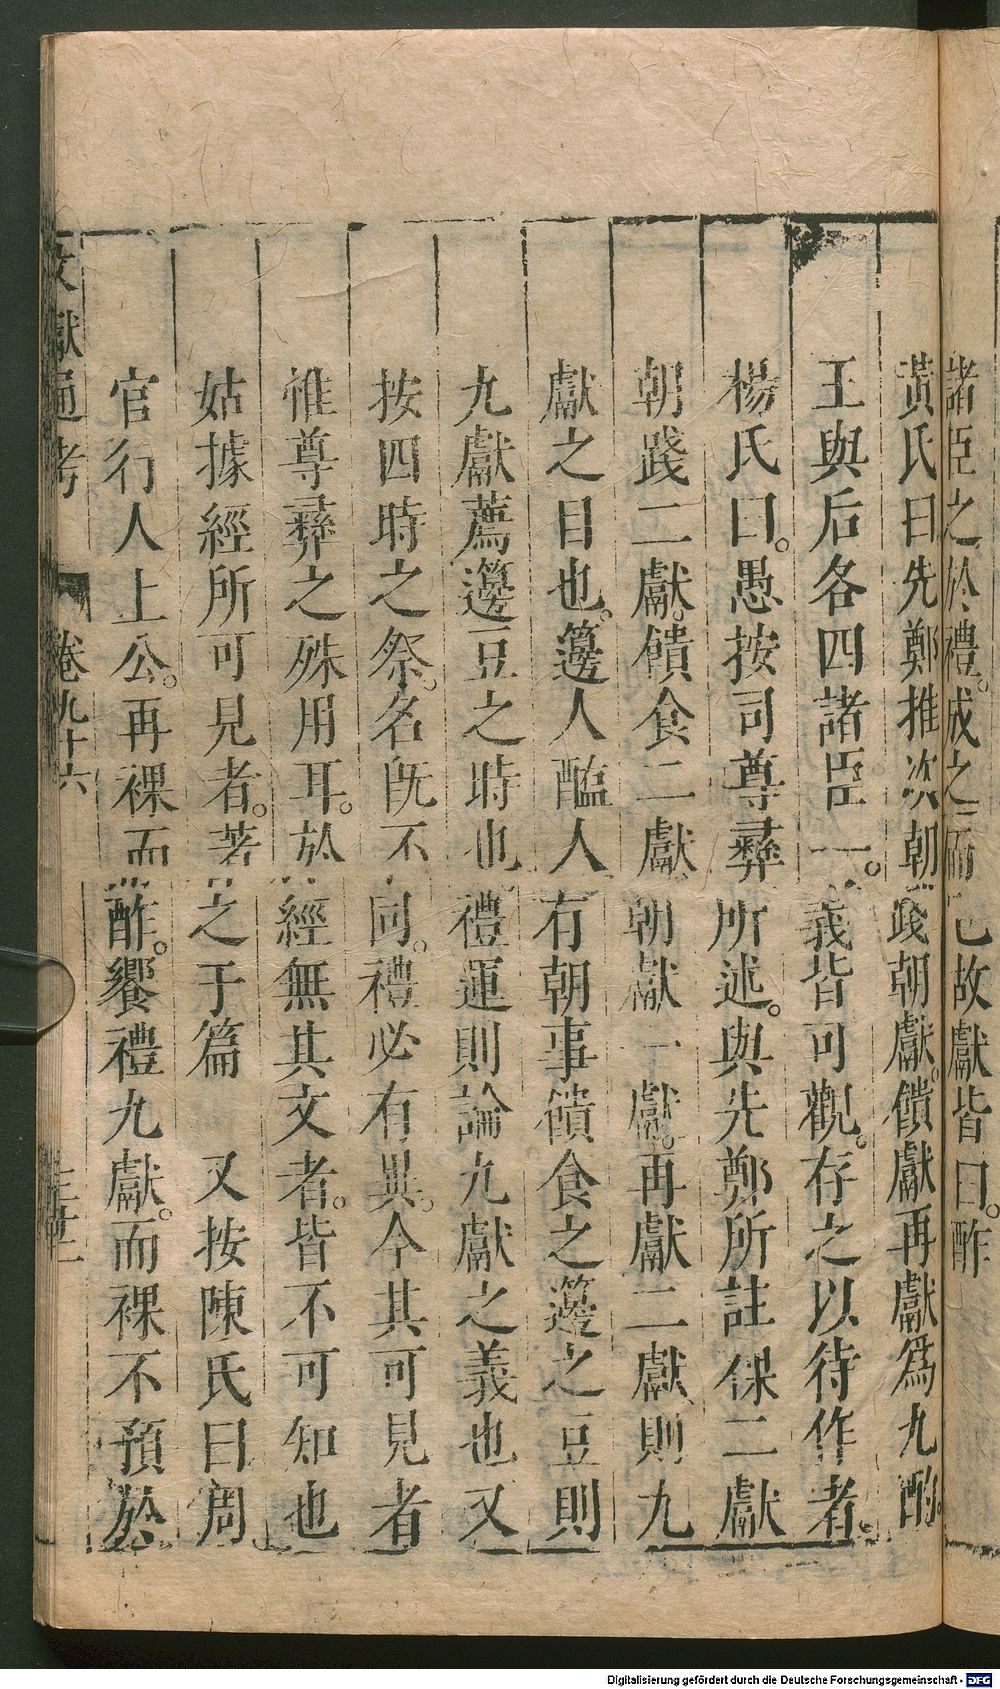 諸臣之於禮。成之而已故獻皆曰。酢
黃氏曰先鄭推次朝踐朝獻。饋獻再獻為九酌。
王與后各四諸臣一。義皆可觀。存之以待作者。
楊氏曰。愚按司尊彝所述。與先鄭所註祼二獻
朝踐二獻。饋食二獻朝獻一獻。再獻二獻則九
獻之目也。籩人醢人有朝事饋食之籩之豆則
九獻薦籩豆之時也禮運則論九獻之義也又
按四時之祭。名旣不同。禮必有異。今其可見者
惟尊彝之殊用耳。於經無其文者。皆不可知也
姑據經所可見者。著之于篇　又按陳氏曰周
官行人上公。再祼而酢。饗禮九獻。而祼不預於
文獻通考　卷九十六
Digitalisierung gefördert durch die Deutsche Forschungsgemeinschaft - DFG